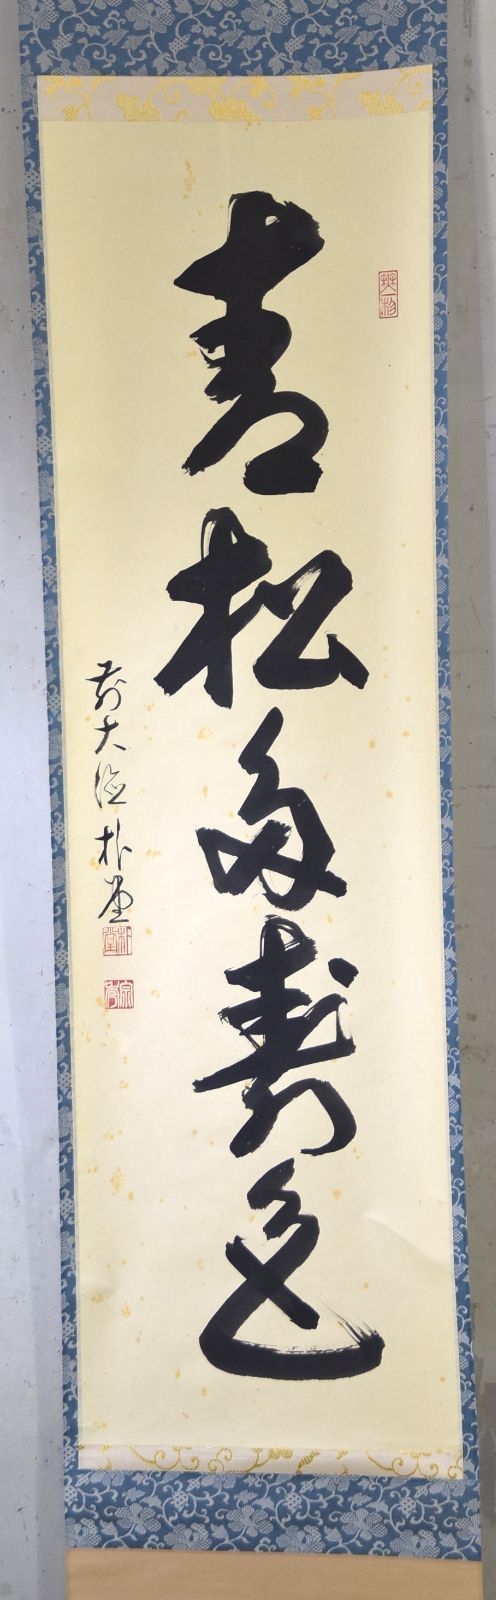 青松多寿色
前大徳朴堂